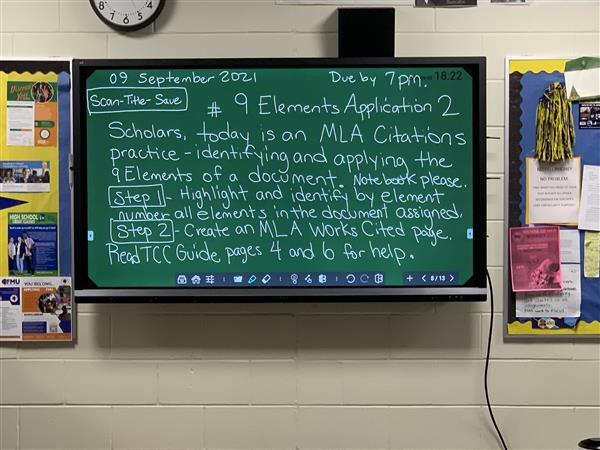 09 September 2021
Due by 7pm.
18:22
Scan-Title-Save
# 9 Elements Application 2
Scholars, today is an MLA Citations
practice - identifying and applying the
9 Elements of a document. Notebook please.
Step 1 - Highlight and identify by element
number all elements in the document assigned.
Step 2 - Create an MLA Works Cited page.
Read TCC Guide, pages 4 and 6 for help.
8/13
HIGH SCHOOL
FMU
YOU BELONG.
NO PROBLEM.